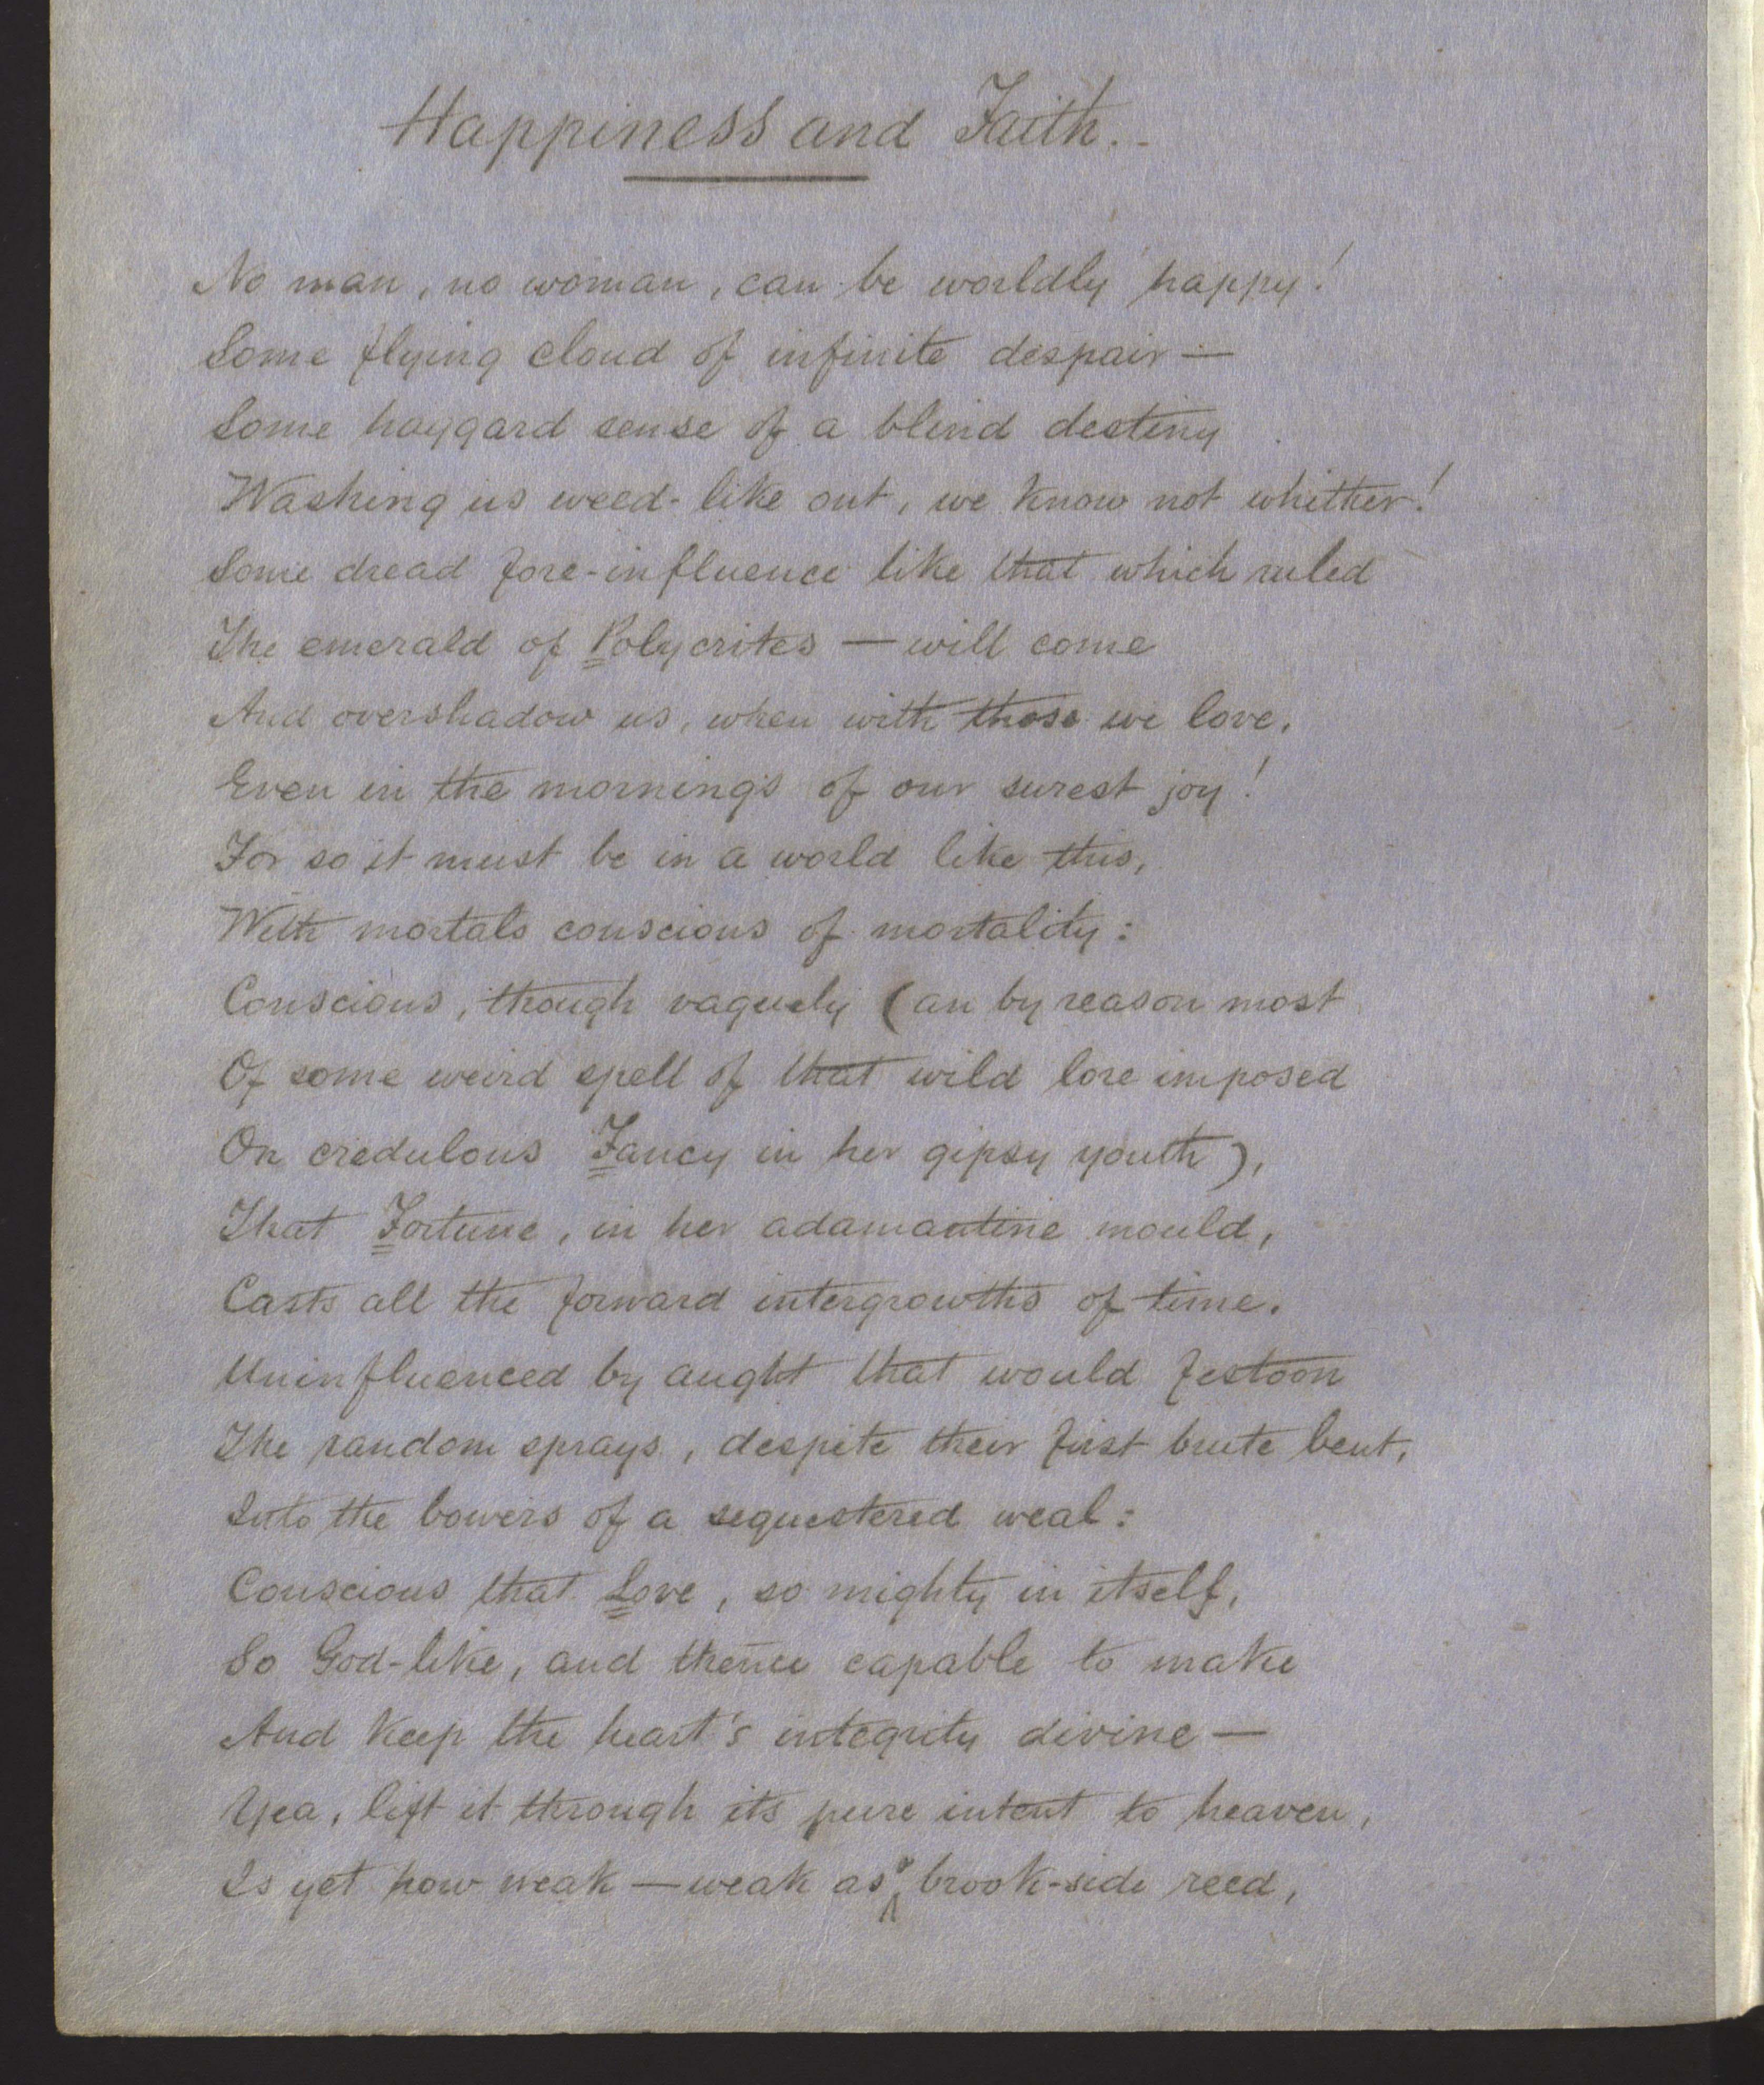 Happiness and Faith.
No man, no woman, can be worldly happy!
Some flying cloud of infinite despair —
Some haggard sense of a blind destiny
Washing us weed-like out, we know not whither!
Some dread fore-influence like that which ruled
The emerald of Polycrites — will come
And overshadow us, when with those we love,
Even in the mornings of our surest joy!
For so it must be in a world like this,
With mortals conscious of mortality:
Conscious, though vaguely (an by reason most
Of some weird spell of that wild lore imposed
On credulous Fancy in her gipsy youth),
That Fortune, in her adamantine mould,
Casts all the forward intergrowths of time.
Uninfluenced by aught that would festoon
The random sprays, despite their first brute bent,
Into the bowers of a sequestered weal:
Conscious that Love, so mighty in itself,
So God-like, and thence capable to make
And keep the heart's integrity divine —
Yea, lift it through its pure intent to heaven,
Is yet how weak — weak as a brook-side reed,